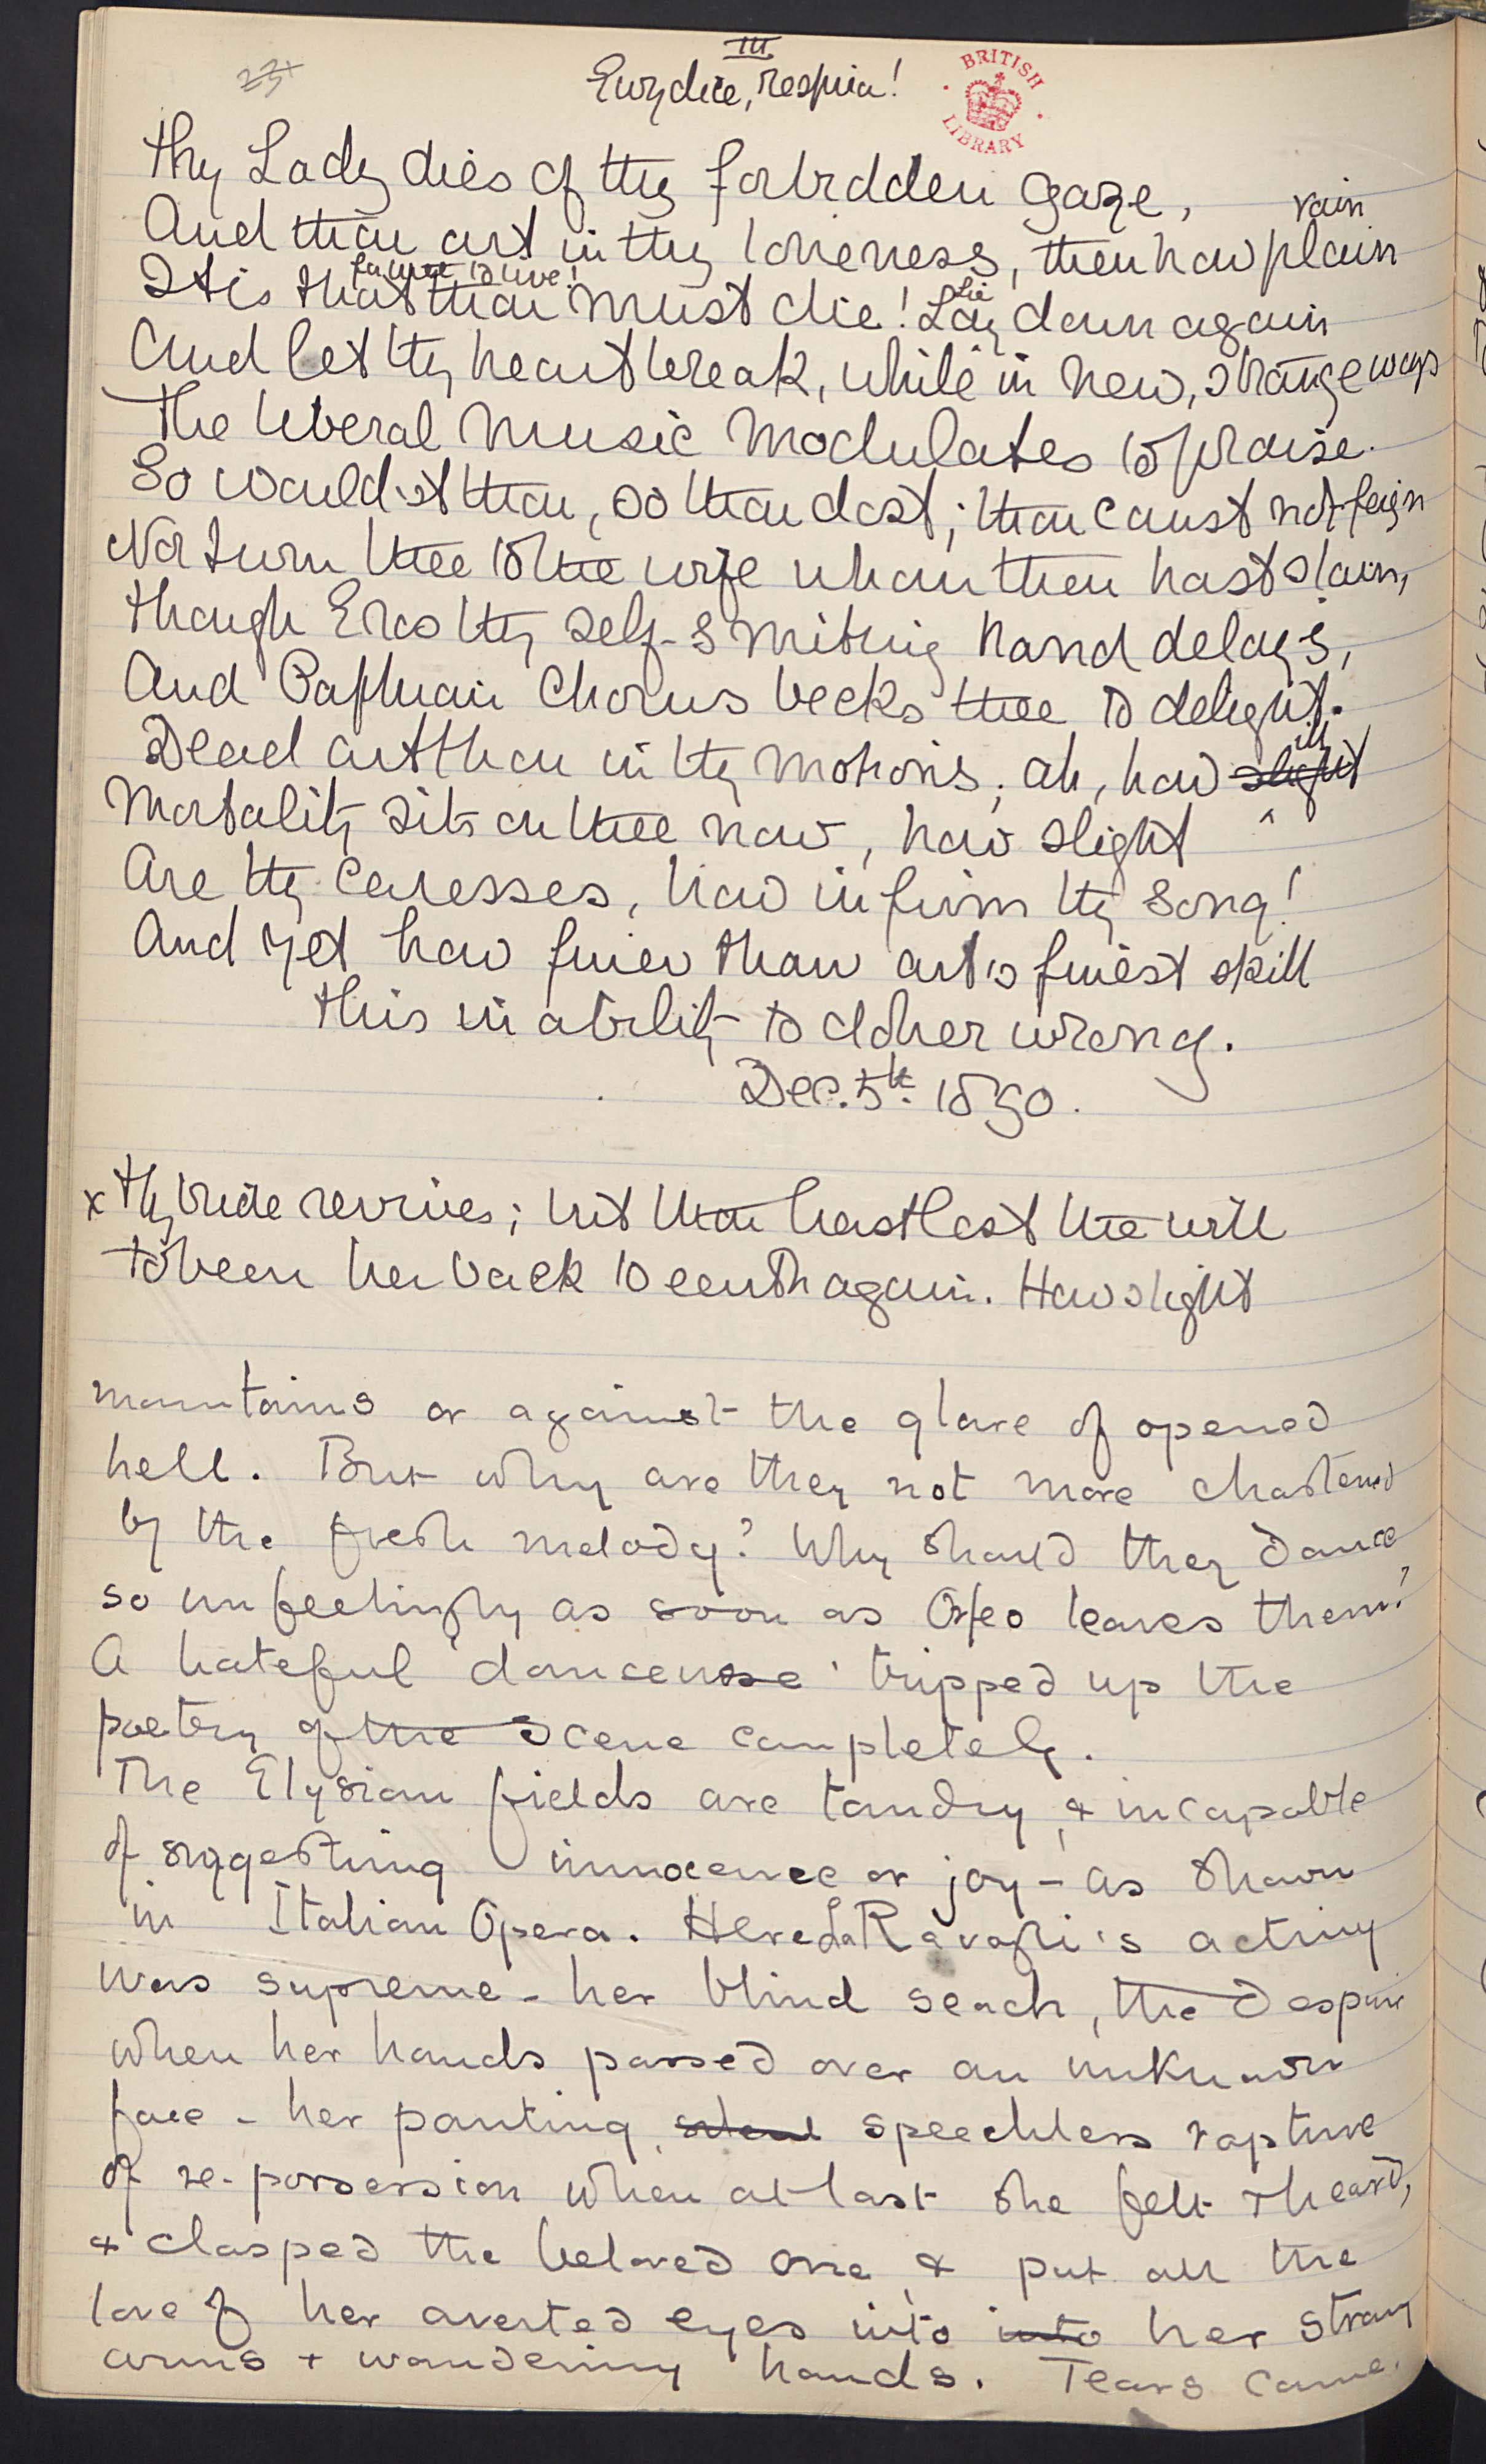 III
Eurydice, respira!
BRITISH
LIBRARY
Thy Lady dies of thy forbidden gaze,
And thou art in thy loneness, then how plain
vain
It is that thou must die! Lay down again
to live!
Lie
And let thy heart break, while in new, strange ways
The liberal music modulates to praise.
So wouldst thou, so thou dost; thou canst not feign
Nor turn thee to the wife whom thou hast slain,
Though Eros thy self-smiting hand delays,
And Paphian Chorus becks thee to delight.
Dead art thou in thy motions; ah, how slight
ill
Mortality sits on thee now, how slight
Are thy caresses, how infirm thy song!
And yet how finer than art's finest skill
This inability to do her wrong.
Dec. 5th 1890.
x Thy bride revives; but thou hast lost the will
To bear her back to earth again. How slight
mountains or against the glare of opened
hell. But why are they not more chastened
by the fresh melody? Why should they dance
so unfeelingly as soon as Orfeo leaves them?
A hateful 'danceuse' tripped up the
poetry of the scene completely.
The Elysian fields are tawdry, & incapable
of suggesting innocence or joy – as shown
in Italian Opera. Here La Ravogli's acting
was supreme – her blind seach, the despair
when her hands passed over an unknown
face – her panting, silent speechless rapture
of re-possession when at last she felt & heard,
& clasped the beloved one, & put all the
love of her averted eyes into into her strong
arms & wandering hands. Tears came.